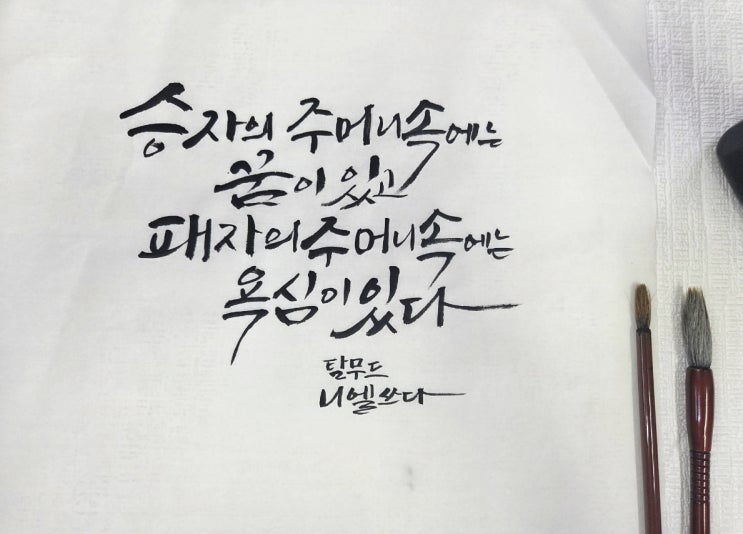 승자의 주머니속에는
꿈이 있고
패자의 주머니속에는
욕심이 있다
탈무드
니엘쓰다